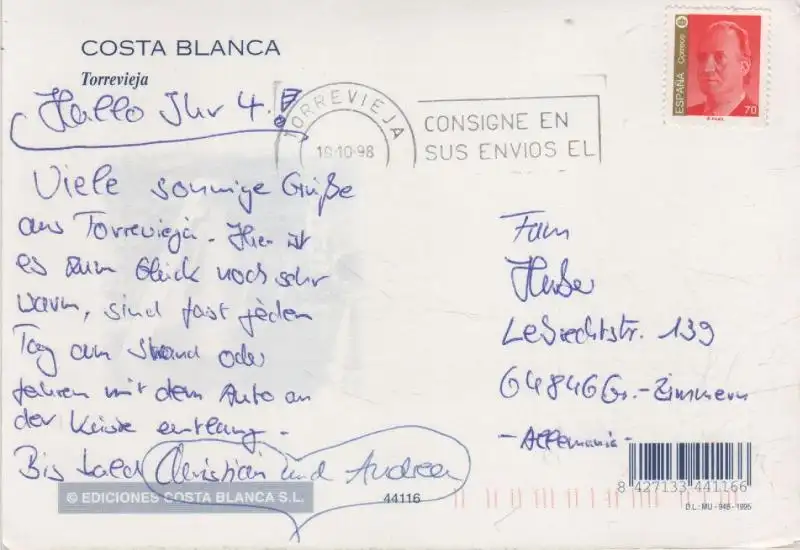 COSTA BLANCA
Torrevieja
Hallo Ihr 4!
Viele sonnige Grüße
aus Torrevieja. Hier ist
es zum Glück noch sehr
warm, sind fast jeden
Tag am Strand oder
fahren mit dem Auto an
der Küste entlang.
Bis bald Christian und Andrea
© EDICIONES COSTA BLANCA S.L.
44116
TORREVIEJA
10-98
CONSIGNE EN
SUS ENVIOS EL
ESPAÑA
Correos
70
Fam
Huber
64846 Gr.-Zimmern
-Allemania-
8 427133 441166
D.L.: MU - 948 - 1995